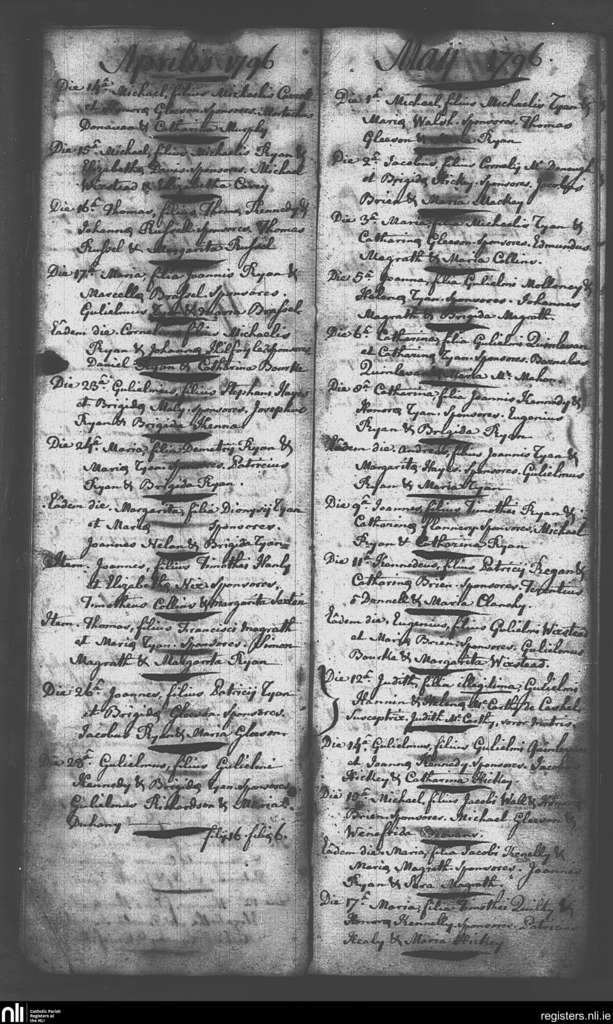 Aprilis 1796
Die 14ª. Michael, filius Michaelis
et Honora Gleeson. Sponsores.
Donavan & Catharina Murphy
Die 15ª. Michael, filius Michaelis Ryan &
Elizabetha Davis. Sponsores. Michael
& Elizabetha
Die 16ª. Thomas, filius Thoma Kennedy &
Johanna Russell. Sponsores. Thomas
Russel & Margarita Russel
Die 17ª. Maria, filia Joannis Ryan &
Marcella Brassel. Sponsores.
Gulielmus Ryan & Maria Brassel
Eadem die. Cornelius, filius Michaelis
Ryan & Johanna Sponsores
Daniel Ryan & Catharina Bourke
Die 23ª. Gulielmus, filius Stephani Hayes
et Brigida Maly. Sponsores. Josephus
Ryan & Brigida Kenna
Die 24ª. Maria, filia Demetrij Ryan &
Maria Tyan. Sponsores. Patricius
Ryan & Brigida Ryan.
Eadem die. Margarita, filia Dionysij Tyan
et Maria Sponsores.
Joannes & Brigida Tyan
Item. Joannes, filius Timothei Hanly
et Elizabetha Sponsores.
Timotheus Collins & Margarita
Item. Thomas, filius Francisci Magrath
et Maria Tyan. Sponsores. Simon
Magrath & Margarita Ryan
Die 26ª. Joannes, filius Patricij Tyan
et Brigida Gleeson. Sponsores.
Jacobus Ryan & Maria Gleeson
Die 28ª. Gulielmus, filius Gulielmi
Kennedy & Brigida Tyan. Sponsores
Gulielmus Richardson & Maria
Duhany
May 1796.
Die 1ª. Michael, filius Michaelis Tyan &
Maria Walsh. Sponsores. Thomas
Gleeson & Maria Ryan
Die 2ª. Jacobus, filius
et Brigida Hickey. Sponsores.
Brien & Maria Mackey
Die 3ª. Maria, filia Michaelis Tyan &
Catharina Gleeson. Sponsores. Edmundus
Magrath & Maria Collins.
Die 5ª. Joanna, filia Gulielmi Mollony &
Helena Tyan. Sponsores. Johannes
Magrath & Brigida Magrath
Die 6ª. Catharina, filia Gulielmi Quinlivan
et Catharina Tyan. Sponsores. Barnabas
Quinlivan & Maria Mc. Mahon
Die 8ª. Catharina, filia Joannis Kennedy &
Honora Tyan. Sponsores. Eugenius
Ryan & Brigida Ryan
Eadem die. Andreas, filius Joannis Tyan &
Margarita Hayes. Sponsores. Gulielmus
Ryan & Maria Ryan
Die 9ª. Joannes, filius Timothei Ryan &
Catharina Flannery. Sponsores. Michael
Ryan & Catharina Ryan
Die 11ª. filius Patricij Regan &
Catharina Brien. Sponsores.
& Maria Clanchy.
Eadem die, Eugenius, filius Gulielmi
et Maria Brien. Sponsores. Gulielmus
Bourke & Margarita
Die 12ª. Judith, filia illigitima, Gulielmi
Hannin & Helena Mc. Carthy de Cashel
Susceptrix. Judith Mc. Carthy, soror Matris.
Die 14ª. Gulielmus, filius Gulielmi Quinlivan
et Joanna Kennedy. Sponsores. Jacobus
Hickey & Catharina Hickey
Die 15ª. Michael, filius Jacobi Wall & Honora
Brien. Sponsores. Michael Gleeson &
Wenefrida
Eadem die. Maria, filia Jacobi Kenelly &
Maria Magrath. Sponsores. Joannes
Ryan & Sara Magrath.
Die 17ª. Maria, filia Timothei Quilty &
Honora Kennelly. Sponsores. Patricius
Healy & Maria Hickey
nli
Catholic Parish
Registers at
the NLI
registers.nli.ie